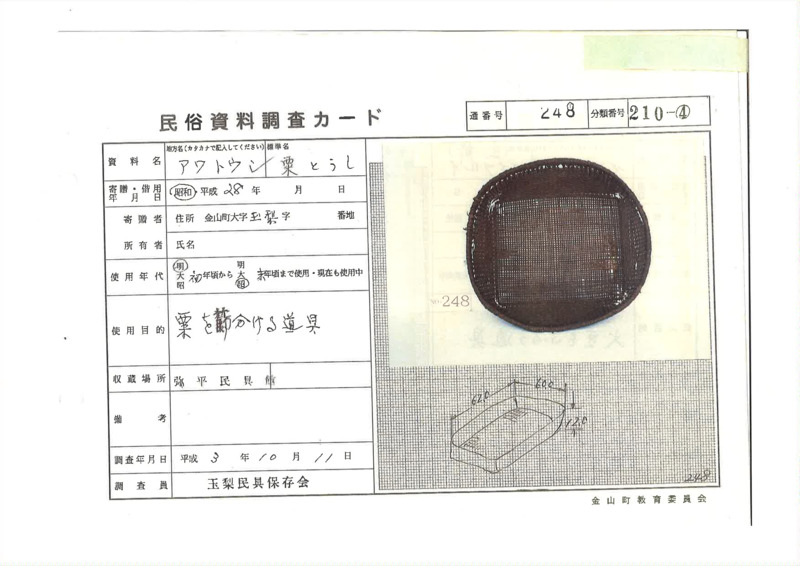 民俗資料調査カード
通番号 248 分類番号 210-④
資料名 地方名(カタカナで記入してください) 標準名
アワトウシ 粟とうし
寄贈・借用年月日 昭和・平成 28年 月 日
寄贈者 住所 金山町大字玉梨字 番地
所有者 氏名
使用年代 明大昭 初年頃から 明大昭 末年頃まで使用・現在も使用中
使用目的 粟を篩分ける道具
収蔵場所 弥平民具館
備考
調査年月日 平成 3年 10月 11日
調査員 玉梨民具保存会
NO 248
62.0
60.0
12.0
248
金山町教育委員会